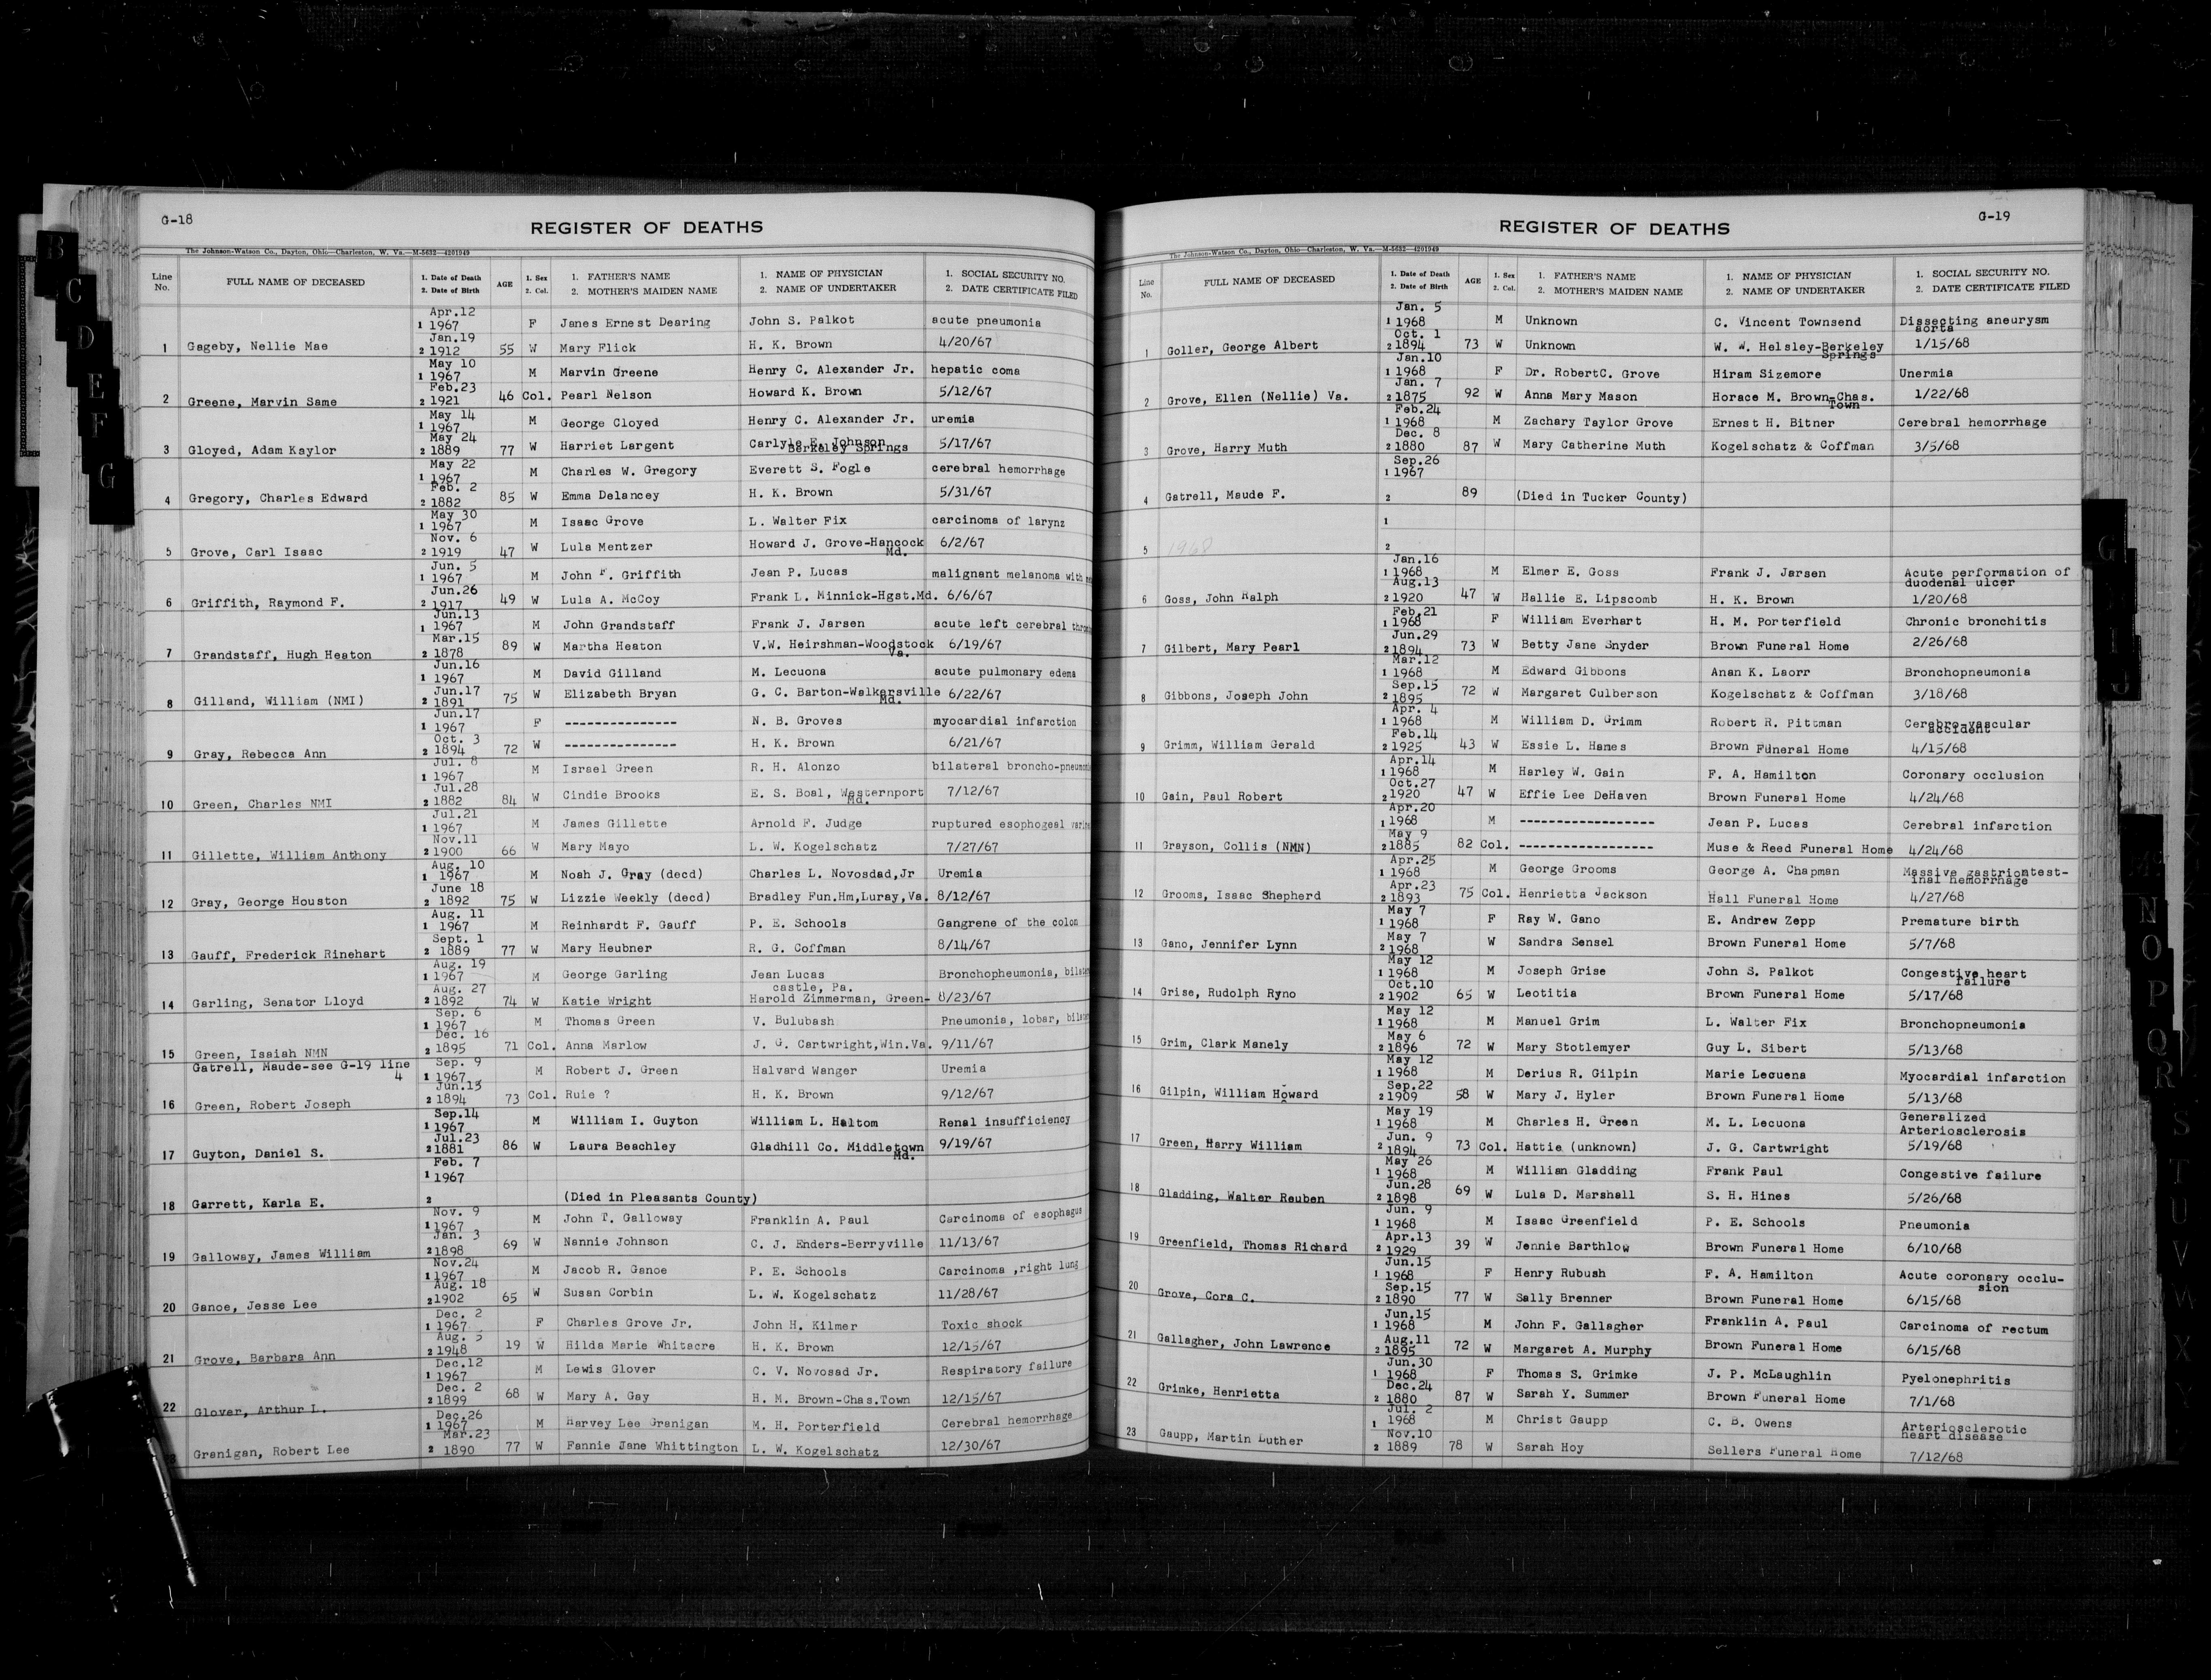 G-18
REGISTER OF DEATHS
The Johnson-Watson Co., Dayton, Ohio—Charleston, W. Va.—M-5632—4201949
Line No. FULL NAME OF DECEASED 1. Date of Death 2. Date of Birth AGE 1. Sex 2. Col. 1. FATHER'S NAME 2. MOTHER'S MAIDEN NAME 1. NAME OF PHYSICIAN 2. NAME OF UNDERTAKER 1. SOCIAL SECURITY NO. 2. DATE CERTIFICATE FILED
Apr.12
1 1967 F Janes Ernest Dearing John S. Palkot acute pneumonia
Jan.19
1 Gageby, Nellie Mae 2 1912 55 W Mary Flick H. K. Brown 4/20/67
May 10
1 1967 M Marvin Greene Henry C. Alexander Jr. hepatic coma
Feb.23
2 Greene, Marvin Same 2 1921 46 Col. Pearl Nelson Howard K. Brown 5/12/67
May 14
1 1967 M George Cloyed Henry C. Alexander Jr. uremia
May 24
3 Gloyed, Adam Kaylor 2 1889 77 W Harriet Largent Carlyle E. Johnson 5/17/67
Berkeley Springs
May 22
1 1967 M Charles W. Gregory Everett S. Fogle cerebral hemorrhage
Feb. 2
4 Gregory, Charles Edward 2 1882 85 W Emma Delancey H. K. Brown 5/31/67
May 30
1 1967 M Isaac Grove L. Walter Fix carcinoma of larynz
Nov. 6
5 Grove, Carl Isaac 2 1919 47 W Lula Mentzer Howard J. Grove-Hancock 6/2/67
Md.
Jun. 5
1 1967 M John F. Griffith Jean P. Lucas malignant melanoma with
Jun.26
6 Griffith, Raymond F. 2 1917 49 W Lula A. McCoy Frank L. Minnick-Hgst.Md. 6/6/67
Jun.13
1 1967 M John Grandstaff Frank J. Jarsen acute left cerebral
Mar.15
7 Grandstaff, Hugh Heaton 2 1878 89 W Martha Heaton V.W. Heirshman-Woodstock 6/19/67
Va.
Jun.16
1 1967 M David Gilland M. Lecuona acute pulmonary edema
Jun.17
8 Gilland, William (NMI) 2 1891 75 W Elizabeth Bryan G. C. Barton-Walkersville 6/22/67
Md.
Jun.17
1 1967 F --------------- N. B. Groves myocardial infarction
Oct. 3
9 Gray, Rebecca Ann 2 1894 72 W --------------- H. K. Brown 6/21/67
Jul. 8
1 1967 M Israel Green R. H. Alonzo bilateral broncho-pneumonia
Jul.28
10 Green, Charles NMI 2 1882 84 W Cindie Brooks E. S. Boal, Westernport 7/12/67
Md.
Jul.21
1 1967 M James Gillette Arnold F. Judge ruptured esophogeal
Nov.11
11 Gillette, William Anthony 2 1900 66 W Mary Mayo L. W. Kogelschatz 7/27/67
Aug. 10
1 1967 M Noah J. Gray (decd) Charles L. Novosdad,Jr Uremia
June 18
12 Gray, George Houston 2 1892 75 W Lizzie Weekly (decd) Bradley Fun.Hm,Luray,Va. 8/12/67
Aug. 11
1 1967 M Reinhardt F. Gauff P. E. Schools Gangrene of the colon
Sept. 1
13 Gauff, Frederick Rinehart 2 1889 77 W Mary Heubner R. G. Coffman 8/14/67
Aug. 19
1 1967 M George Garling Jean Lucas Bronchopheumonia,
Aug. 27 castle, Pa.
14 Garling, Senator Lloyd 2 1892 74 W Katie Wright Harold Zimmerman, Green- 8/23/67
Sep. 6
1 1967 M Thomas Green V. Bulubash Pneumonia, lobar,
Dec. 16
15 Green, Isaiah NMN 2 1895 71 Col. Anna Marlow J. G. Cartwright,Win.Va. 9/11/67
Gatrell, Maude-see G-19 line 4
Sep. 9
1 1967 M Robert J. Green Halvard Wanger Uremia
Jun.15
16 Green, Robert Joseph 2 1894 73 Col. Ruie ? H. K. Brown 9/12/67
Sep.14
1 1967 M William I. Guyton William L. Haltom Renal insufficiency
Jul.23
17 Guyton, Daniel S. 2 1881 86 W Laura Beachley Gladhill Co. Middletown 9/19/67
Md.
Feb. 7
1 1967
18 Garrett, Karla E. 2 (Died in Pleasants County)
Nov. 9
1 1967 M John T. Galloway Franklin A. Paul Carcinoma of esophagus
Jan. 3
19 Galloway, James William 2 1898 69 W Nannie Johnson C. J. Enders-Berryville 11/13/67
Nov.24
1 1967 M Jacob R. Ganoe P. E. Schools Carcinoma ,right lung
Aug. 18
20 Ganoe, Jesse Lee 2 1902 65 W Susan Corbin L. W. Kogelschatz 11/28/67
Dec. 2
1 1967 F Charles Grove Jr. John H. Kilmer Toxic shock
Aug. 5
21 Grove, Barbara Ann 2 1948 19 W Hilda Marie Whitacre H. K. Brown 12/15/67
Dec.12
1 1967 M Lewis Glover C. V. Novosad Jr. Respiratory failure
Dec. 2
22 Glover, Arthur L. 2 1899 68 W Mary A. Gay H. M. Brown-Chas.Town 12/15/67
Dec.26
1 1967 M Harvey Lee Granigan M. H. Porterfield Cerebral hemorrhage
Mar.23
Granigan, Robert Lee 2 1890 77 W Fannie Jane Whittington L. W. Kogelschatz 12/30/67
G-19
REGISTER OF DEATHS
The Johnson-Watson Co., Dayton, Ohio—Charleston, W. Va.—M-5632—4201949
Line No. FULL NAME OF DECEASED 1. Date of Death 2. Date of Birth AGE 1. Sex 2. Col. 1. FATHER'S NAME 2. MOTHER'S MAIDEN NAME 1. NAME OF PHYSICIAN 2. NAME OF UNDERTAKER 1. SOCIAL SECURITY NO. 2. DATE CERTIFICATE FILED
Jan. 5
1 1968 M Unknown C. Vincent Townsend Dissecting aneurysm
Oct. 1 aorta
1 Goller, George Albert 2 1894 73 W Unknown W. W. Helsley-Berkeley 1/15/68
Springs
Jan.10
1 1968 F Dr. RobertC. Grove Hiram Sizemore Unermia
Jan. 7
2 Grove, Ellen (Nellie) Va. 2 1875 92 W Anna Mary Mason Horace M. Brown-Chas. 1/22/68
Town
Feb.24
1 1968 M Zachary Taylor Grove Ernest H. Bitner Cerebral hemorrhage
Dec. 8
3 Grove, Harry Muth 2 1880 87 W Mary Catherine Muth Kogelschatz & Coffman 3/5/68
Sep.26
1 1967
4 Gatrell, Maude F. 2 89 (Died in Tucker County)
1
5 1968 2
Jan.16
1 1968 M Elmer E. Goss Frank J. Jarsen Acute performation of
Aug.13 duodenal ulcer
6 Goss, John Ralph 2 1920 47 W Hallie E. Lipscomb H. K. Brown 1/20/68
Feb.21
1 1968 F William Everhart H. M. Porterfield Chronic bronchitis
Jun.29
7 Gilbert, Mary Pearl 2 1894 73 W Betty Jane Snyder Brown Funeral Home 2/26/68
Mar.12
1 1968 M Edward Gibbons Anan K. Laorr Bronchopneumonia
Sep.15
8 Gibbons, Joseph John 2 1895 72 W Margaret Culberson Kogelschatz & Coffman 3/18/68
Apr. 4
1 1968 M William D. Grimm Robert R. Pittman Cerebro-vascular
Feb.14 accident
9 Grimm, William Gerald 2 1925 43 W Essie L. Hanes Brown Funeral Home 4/15/68
Apr.14
1 1968 M Harley W. Gain F. A. Hamilton Coronary occlusion
Oct.27
10 Gain, Paul Robert 2 1920 47 W Effie Lee DeHaven Brown Funeral Home 4/24/68
Apr.20
1 1968 M ------------------ Jean P. Lucas Cerebral infarction
May 9
11 Grayson, Collis (NMN) 2 1885 82 Col. ------------------ Muse & Reed Funeral Home 4/24/68
Apr.25
1 1968 M George Grooms George A. Chapman Massive gastriontest-
Apr.23 inal hemorrhage
12 Grooms, Isaac Shepherd 2 1893 75 Col. Henrietta Jackson Hall Funeral Home 4/27/68
May 7
1 1968 F Ray W. Gano E. Andrew Zepp Premature birth
May 7
13 Gano, Jennifer Lynn 2 1968 W Sandra Sensel Brown Funeral Home 5/7/68
May 12
1 1968 M Joseph Grise John S. Palkot Congestive heart
Oct.10 failure
14 Grise, Rudolph Ryno 2 1902 65 W Leotitia Brown Funeral Home 5/17/68
May 12
1 1968 M Manuel Grim L. Walter Fix Bronchopneumonia
May 6
15 Grim, Clark Manely 2 1896 72 W Mary Stotlemyer Guy L. Sibert 5/13/68
May 12
1 1968 M Derius R. Gilpin Marie Lecuena Myocardial infarction
Sep.22
16 Gilpin, William Howard 2 1909 58 W Mary J. Hyler Brown Funeral Home 5/13/68
May 19 Generalized
1 1968 M Charles H. Green M. L. Lecuona Arteriosclerosis
Jun. 9
17 Green, Harry William 2 1894 73 Col. Hattie (unknown) J. G. Cartwright 5/19/68
May 26
1 1968 M William Gladding Frank Paul Congestive failure
Jun.28
18 Gladding, Walter Reuben 2 1898 69 W Lula D. Marshall S. H. Hines 5/26/68
Jun. 9
1 1968 M Isaac Greenfield P. E. Schools Pneumonia
Apr.13
19 Greenfield, Thomas Richard 2 1929 39 W Jennie Barthlow Brown Funeral Home 6/10/68
Jun.15
1 1968 F Henry Rubush F. A. Hamilton Acute coronary occlu-
Sep.15 sion
20 Grove, Cora C. 2 1890 77 W Sally Brenner Brown Funeral Home 6/15/68
Jun.15
1 1968 M John F. Gallagher Franklin A. Paul Carcinoma of rectum
Aug.11
21 Gallagher, John Lawrence 2 1895 72 W Margaret A. Murphy Brown Funeral Home 6/15/68
Jun.30
1 1968 F Thomas S. Grimke J. P. McLaughlin Pyelonephritis
Dec.24
22 Grimke, Henrietta 2 1880 87 W Sarah Y. Summer Brown Funeral Home 7/1/68
Jul. 2
1 1968 M Christ Gaupp C. B. Owens Arteriosclerotic
Nov.10 heart disease
23 Gaupp, Martin Luther 2 1889 78 W Sarah Hoy Sellers Funeral Home 7/12/68
B
C
D
E
F
G
G
J
N
O
P
Q
R
S
T
U
V
W
X